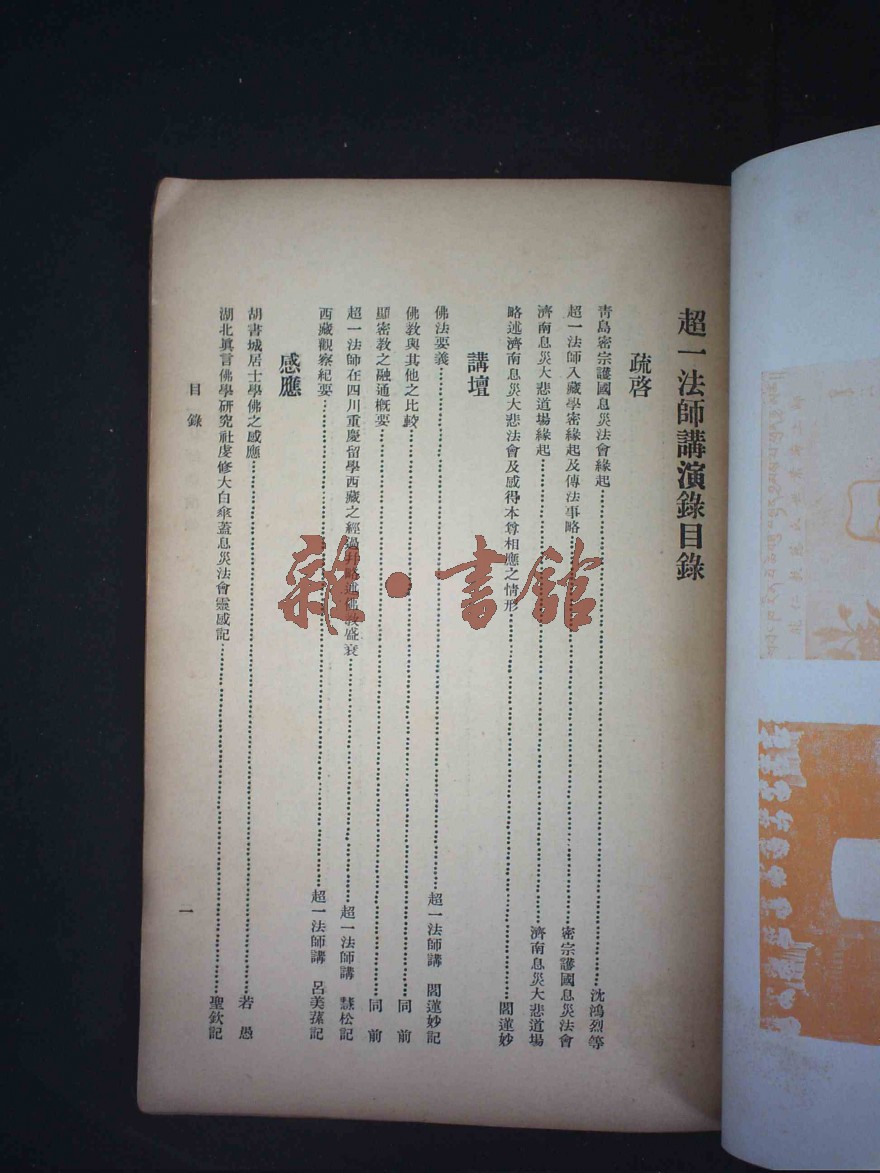 超一法師講演錄目錄
疏啓
靑島密宗護國息災法會緣起………沈鴻烈等
超一法師入藏學密緣起及傳法事略………密宗護國息災法會
濟南息災大悲道場緣起………濟南息災大悲道場
略述濟南息災大悲法會及感得本尊相應之情形………閻蓮妙
講壇
佛法要義………超一法師講 閻蓮妙記
佛敎與其他之比較………同前
顯密敎之融通槪要………同前
超一法師在四川重慶留學西藏之經過幷略述佛敎盛衰………超一法師講 慧松記
西藏觀察紀要………超一法師講 呂美蓀記
感應
胡書城居士學佛之感應………若愚
湖北眞言佛學硏究社虔修大白傘蓋息災法會靈感記………聖欽記
目錄
一
雜·書館